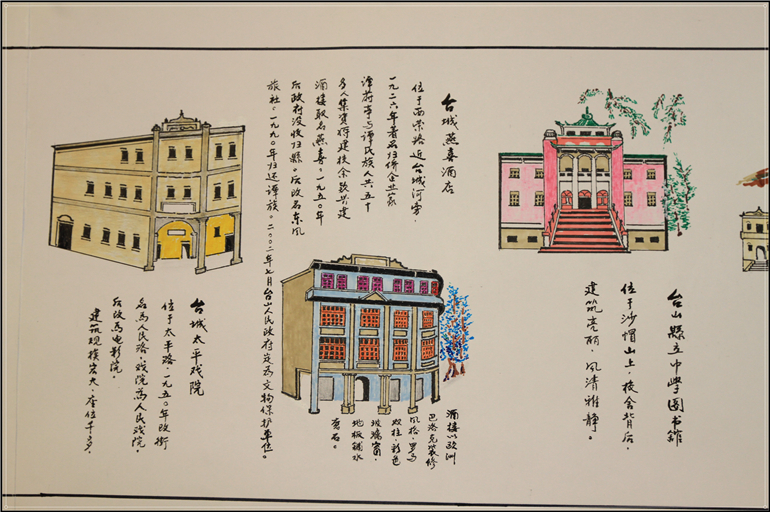 台山縣立中學图书館
位于沙帽山上，校舍背后，
建筑亮丽，风清雅静。
台城燕喜酒店
位于西荣路近台城河旁，
一九二六年著名归侨企业家
谭蔚亭与谭氏族人共五十
多人集資將建校余款兴建
酒楼取名燕喜。一九五〇年
后政府没收归縣。后改名东风
旅社。一九九〇年归还譚族。二〇〇二年七月台山人民政府定为文物保护单位。
酒楼以欧洲
巴洛克装修
风格，罗马
双柱，彩色
玻璃窗，
地板鋪水
石。
台城太平戏院
位于太平路，一九五〇年改街
名为人民路，戏院为人民戏院，
后改为电影院。
建筑规模宏大，座位千多，